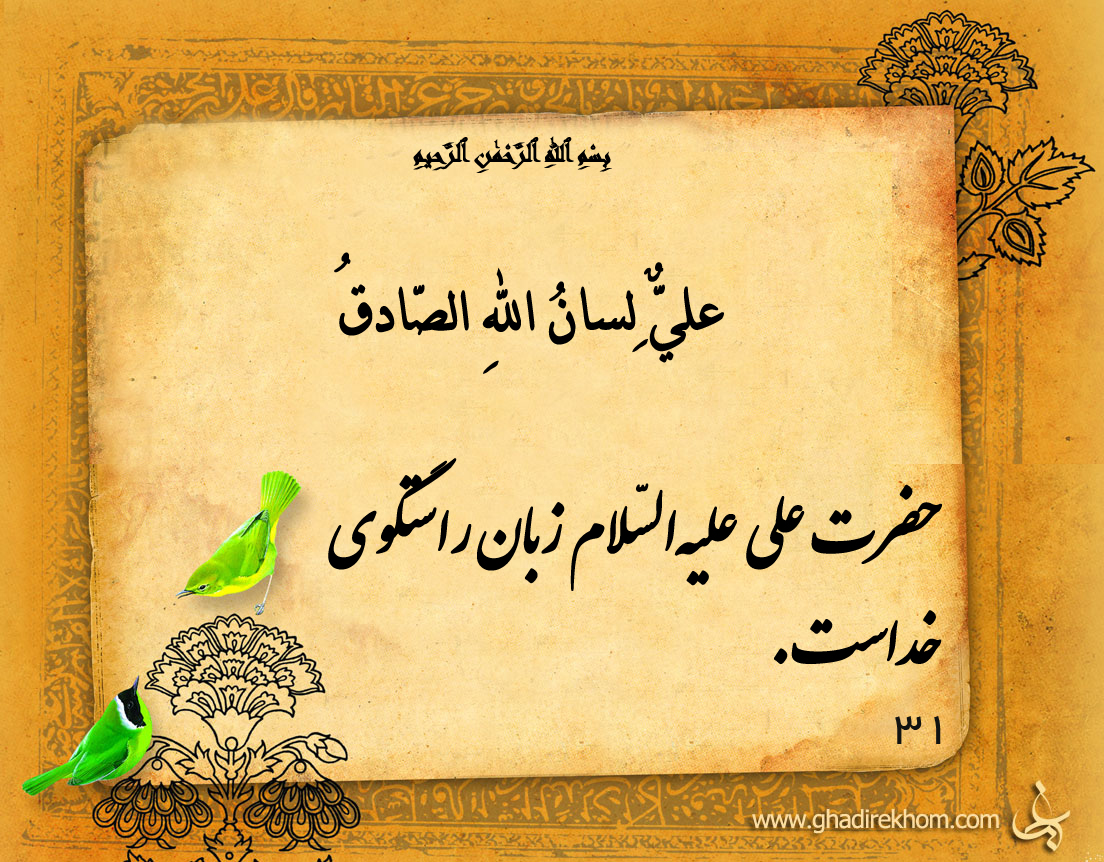 بِسْمِ اللهِ الرَّحْمٰنِ الرَّحِیمِ
عليٌّ لِسانُ اللهِ الصّادقُ
حضرت علی علیه السّلام زبان راستگوی
خداست.
۳۱
www.ghadirekhom.com